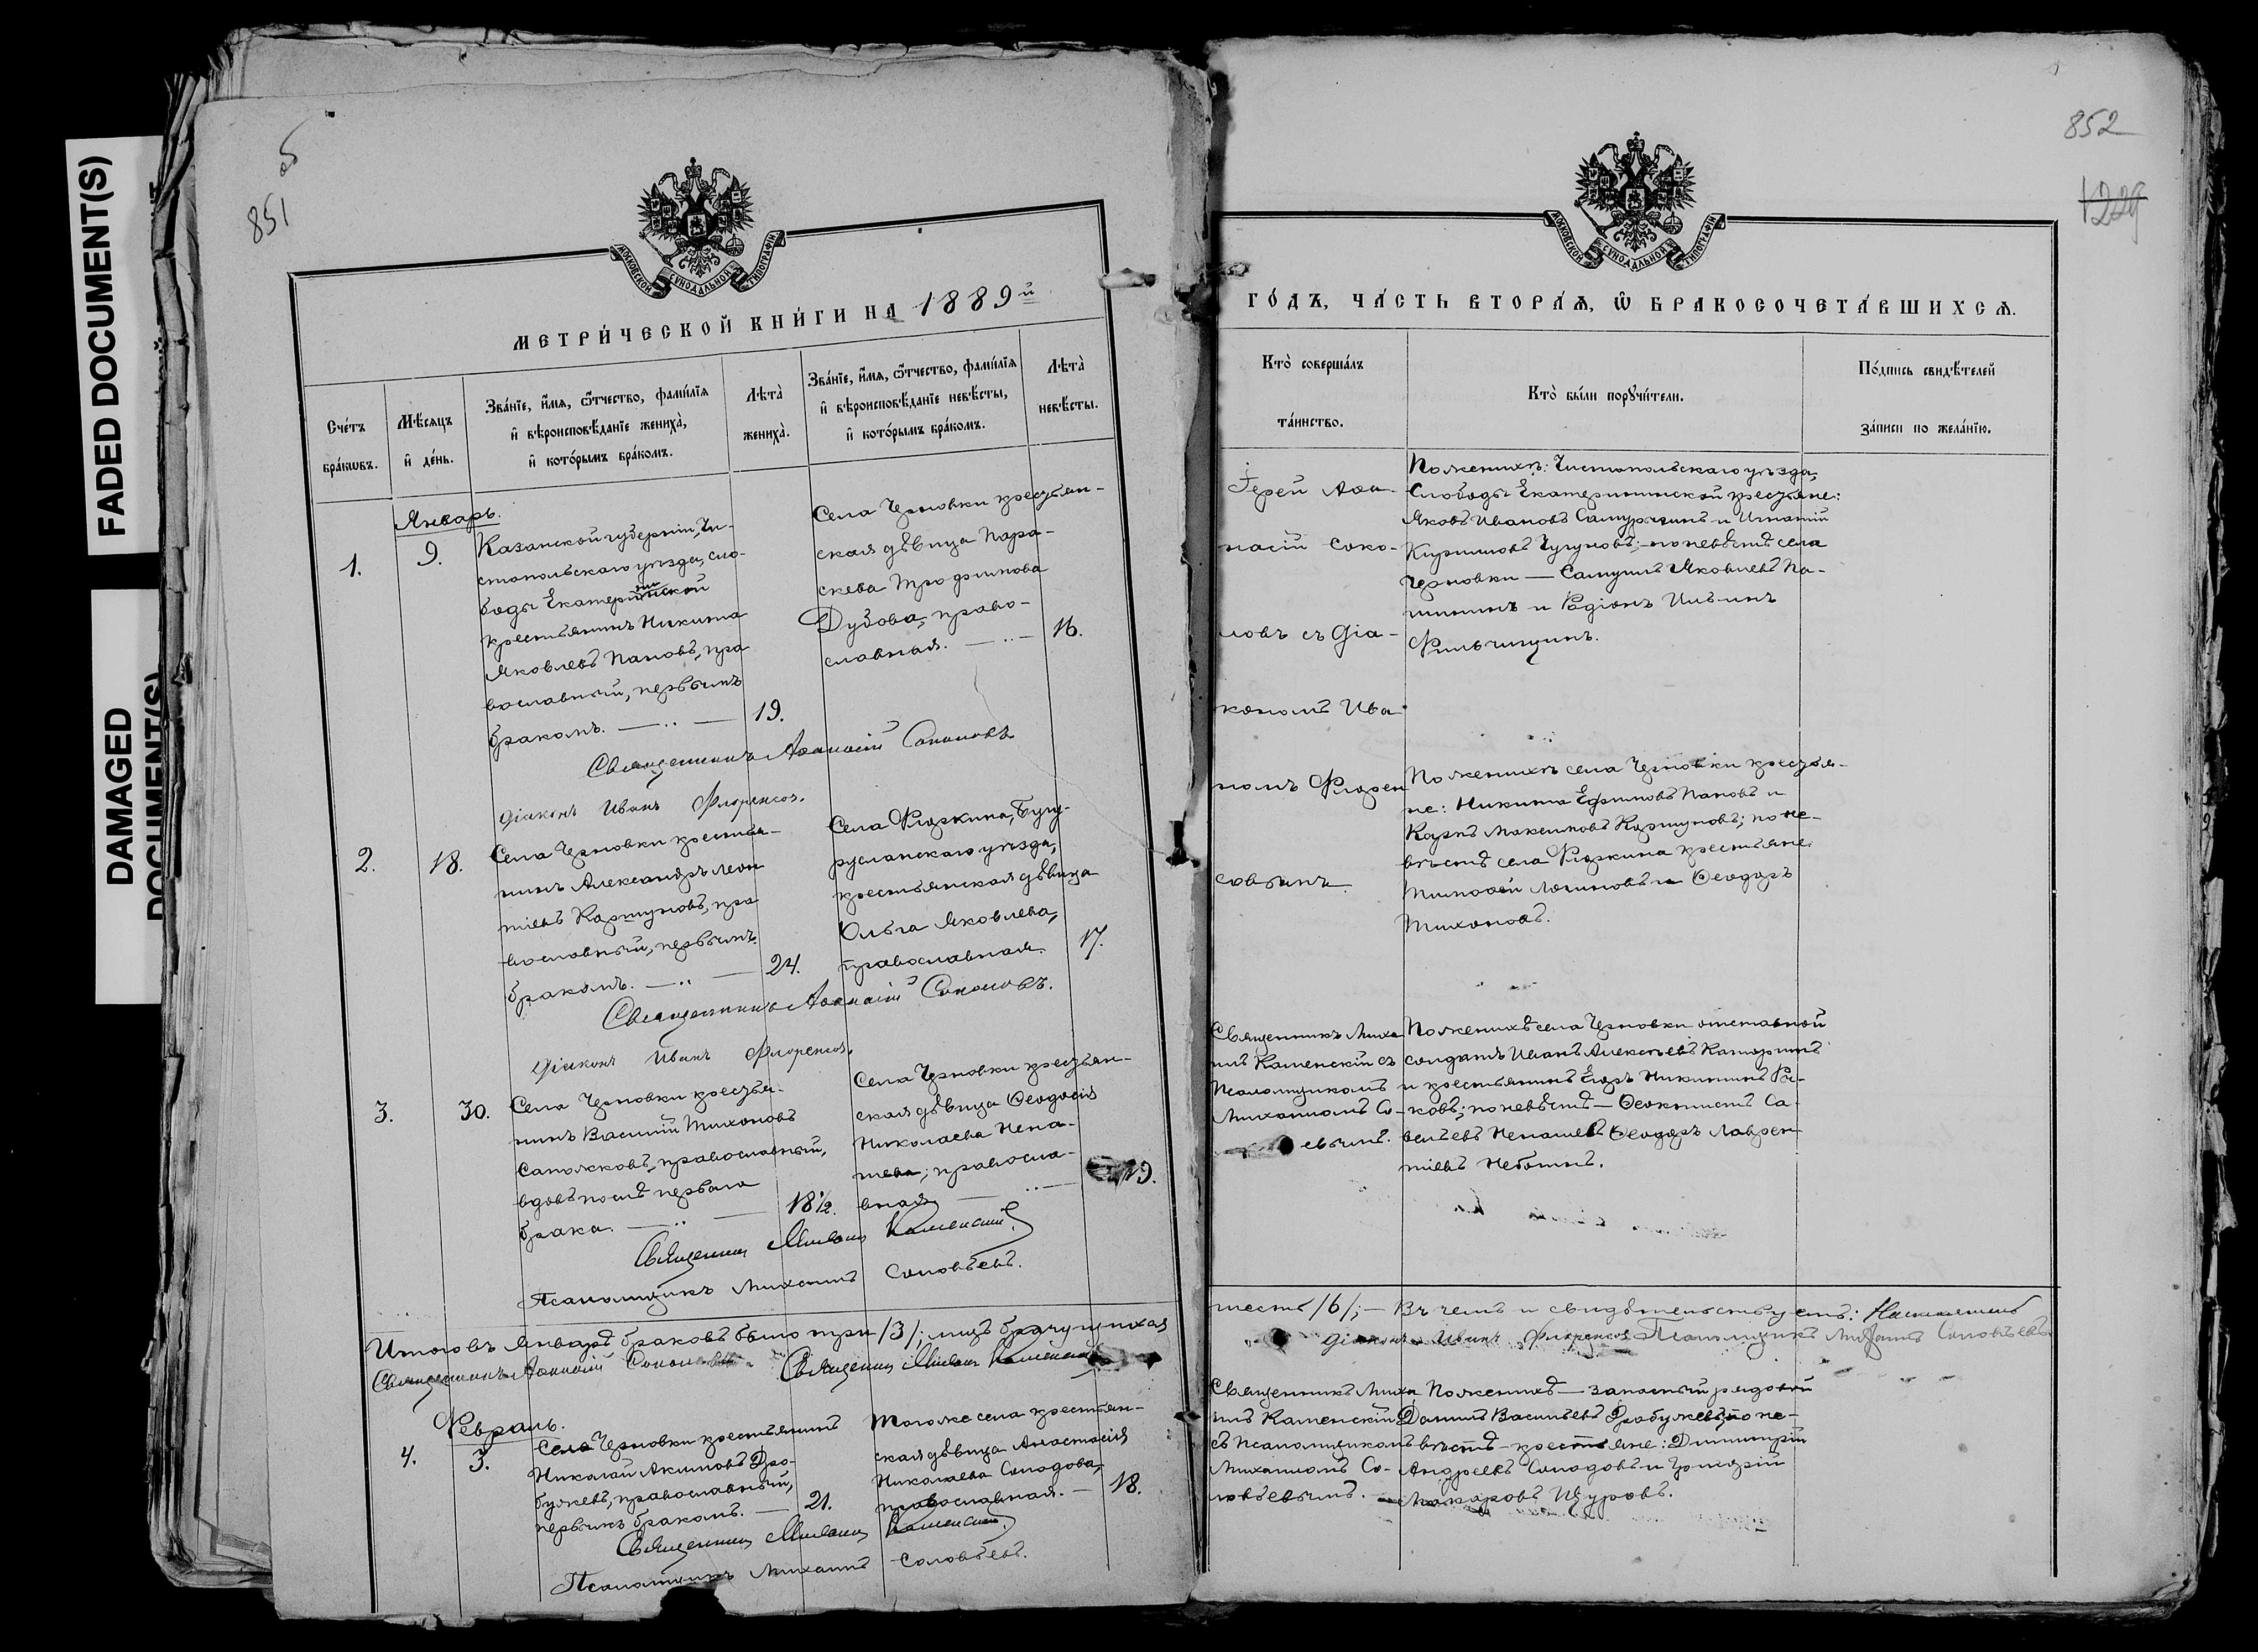 FADED DOCUMENT(S)
DAMAGED
DOCUMENT(S)
851 об
МОСКОВСКОЙ СѴНОДАЛЬНОЙ ТИПОГРАФІИ
МЕТРИ́ЧЕСКОЙ КНИ́ГИ НА 1889й
Сче́тъ бра́кѡвъ.
Мѣ́сяцъ и҆ де́нь.
Зва́нїе, и҆́мѧ, ѻ҆́тчество, фами́лїѧ
и҆ вѣроисповѣ́данїе жениха̀,
и҆ кото́рымъ бра́комъ.
Лѣта̀
жениха̀.
Зва́нїе, и҆́мѧ, ѻ҆́тчество, фами́лїѧ
и҆ вѣроисповѣ́данїе невѣ́сты,
и҆ кото́рымъ бра́комъ.
Лѣта̀
невѣ́сты.
Январь.
1.
9.
Казанской губерніи, Чи-
стопольскаго уѣзда, сло-
боды Екатерининской
крестьянинъ Никита
Яковлевъ Пановъ, пра
вославный, первымъ
бракомъ. — 19.
Села Черновки крестьян-
ская дѣвица Пара-
скева Трофимова
Дубова, право-
славная. — 16.
Священникъ Аѳанасій Соколовъ
Діаконъ Иванъ Флоренсов.
2.
18.
Села Черновки крестья-
нинъ Александръ Леон
тіевъ Коршуновъ, пра
вославный, первымъ
бракомъ. — 24.
Села Ряжкина, Бугу-
русланскаго уѣзда,
крестьянская дѣвица
Ольга Яковлева,
православная. 17.
Священникъ Аѳанасій Соколовъ.
Діаконъ Иванъ Флоренсов.
3.
30.
Села Черновки крестья-
нинъ Василій Тихоновъ
Сапожковъ, православный,
вдовъ послѣ перваго
брака. — 18½.
Села Черновки крестьян-
ская дѣвица Ѳеодосія
Николаева Нена-
шева; правосла-
вная — 19.
Священникъ Михаилъ Каменскій.
Псаломщикъ Михаилъ Соловьевъ.
Итого въ Январѣ браковъ было три /3/; лицъ брачущихся
Священникъ Аѳанасій Соколовъ Священникъ Михаилъ Каменскій
Февраль.
4.
3.
Села Черновки крестьянинъ
Николай Акимовъ Дро-
бужевъ, православный,
первымъ бракомъ. — 21.
Того же села крестьян-
ская дѣвица Анастасія
Николаева Солодова,
православная. — 18.
Священникъ Михаилъ Каменскій.
Псаломщикъ Михаилъ Соловьевъ.
852
1229
МОСКОВСКОЙ СѴНОДАЛЬНОЙ ТИПОГРАФІИ
ГО́ДЪ, ЧА́СТЬ ВТОРА́Ѧ, Ѽ БРАКОСОЧЕТА́ВШИХСѦ.
Кто̀ соверша́лъ
та́инство.
Кто̀ бы́ли порꙋчи́тели.
По́дпись свидѣ́телей
за́писи по жела́нїю.
Іерей Аѳа-
насій Соко-
ловъ съ діа-
кономъ Ива
номъ Флорен
совымъ.
По женихѣ: Чистопольскаго уѣзда,
Слободы Екатерининской крестьяне:
Яковъ Ивановъ Самурыгинъ и Игнатій
Кириловъ Чугуновъ; по невѣстѣ села
Черновки — Самуилъ Яковлевъ Па-
нинъ и Родіонъ Ильинъ
Фильчугинъ.
По женихѣ села Черновки крестья-
не: Никита Ефимовъ Пановъ и
Карпъ Максимовъ Коршуновъ; по не-
вѣстѣ села Ряжкина крестьяне
Тимоѳей Логиновъ и Ѳеодоръ
Тихоновъ.
Священникъ Миха
илъ Каменскій съ
Псаломщикомъ
Михаиломъ Со-
евымъ.
По женихѣ села Черновки отставной
солдатъ Иванъ Алексѣевъ
и крестьянинъ Егоръ Никитинъ Ра-
ковъ; по невѣстѣ — Ѳеоктистъ Са-
вельевъ Ненашевъ Ѳеодоръ Лаврен-
тіевъ
шесть /6/; — Въ чемъ и свидѣтельствуемъ:
діаконъ Иванъ Флоренсов Псаломщикъ Михаилъ Соловьевъ.
Священникъ Миха
илъ Каменскій
съ псаломщикомъ
Михаиломъ Со-
ловьевымъ.
По женихѣ — запасный рядовой
Данилъ Васильевъ Дробужевъ; по не-
вѣстѣ — крестьяне: Димитрій
Андреевъ Солодовъ и Григорій
Макаровъ Щуровъ.